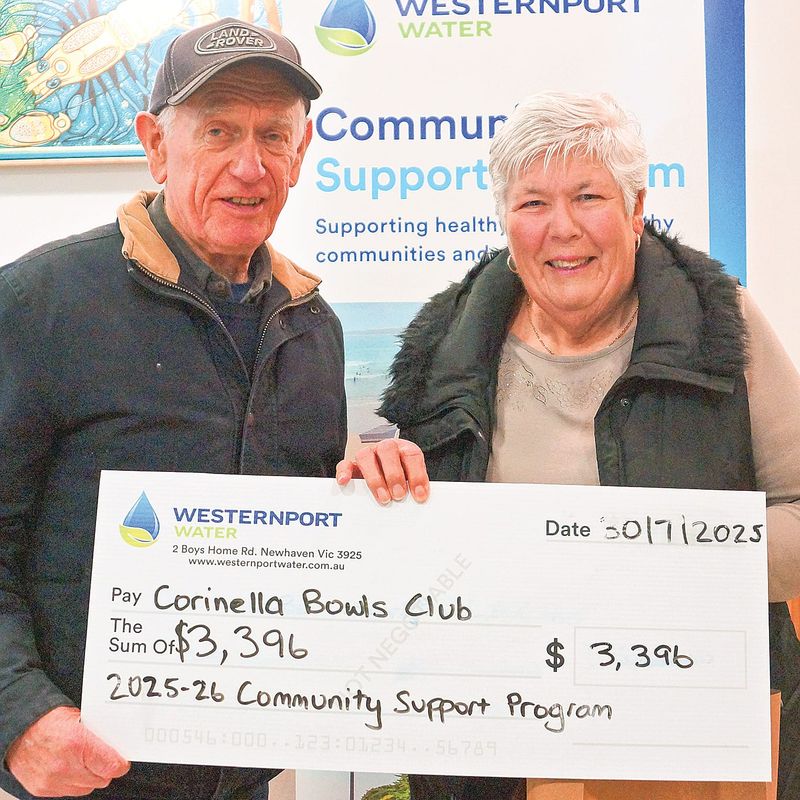 LAND
ROVER
WESTERNPORT
WATER
Support
Supporting healthy
communities and
WESTERNPORT
WATER
2 Boys Home Rd. Newhaven Vic 3925
www.westernportwater.com.au
Date 30/7/2025
Pay Corinella Bowls Club
The
Sum Of $3,396
$ 3,396
2025-26 Community Support Program
000546:000..123:01234..56789